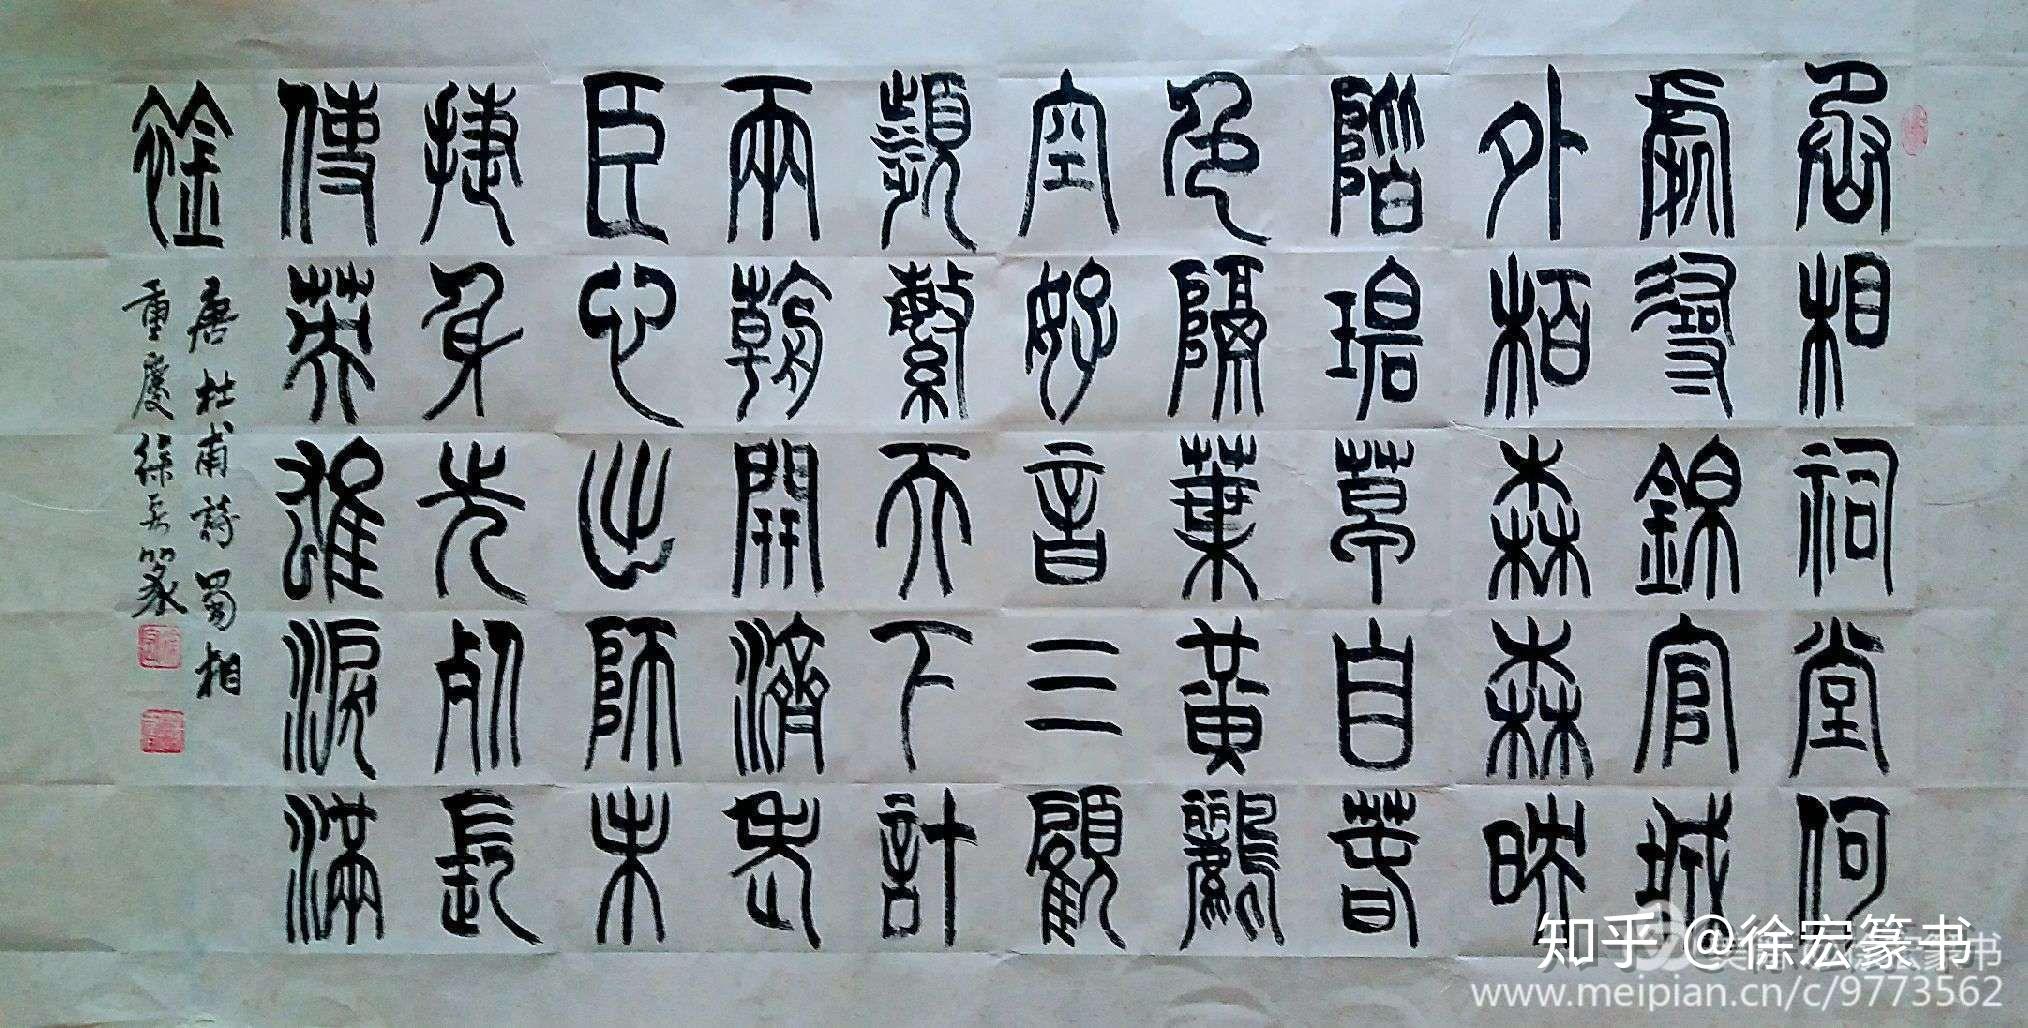 丞相祠堂何
處尋錦官城
外柏森森映
階碧草自春
色隔葉黃鸝
空好音三顧
頻繁天下計
兩朝開濟老
臣心出師未
捷身先死長
使英雄淚滿
襟
唐杜甫詩蜀相
重慶徐宏篆
知乎 @徐宏篆书
www.meipian.cn/c/9773562